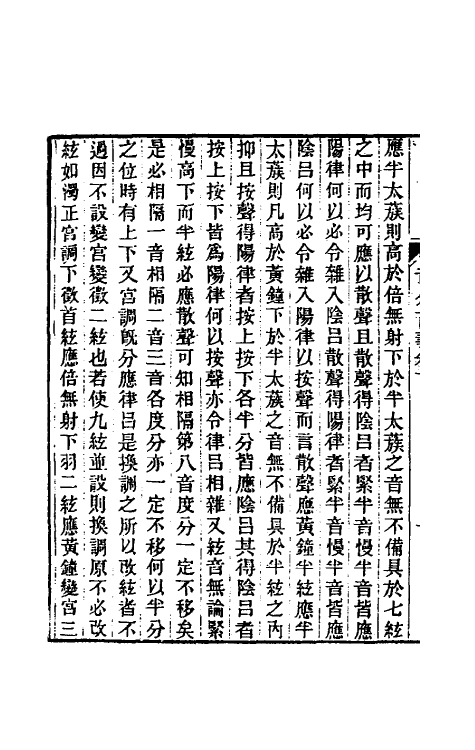 應半太蔟則高於倍無射下於半太蔟之音無不備具於七絃
之中而均可應以散聲且散聲得陰呂者緊半音慢半音皆應
陽律何以必令雜入陰呂散聲得陽律者緊半音慢半音皆應
陰呂何以必令雜入陽律以按聲而言散聲應黃鐘半絃應半
太蔟則凡高於黃鐘下於半太蔟之音無不備具於半絃之內
抑且按聲得陽律者按上按下各半分皆應陰呂其得陰呂者
按上按下皆爲陽律何以按聲亦令律呂相雜又絃音無論緊
慢高下而半絃必應散聲可知相隔第八音度分一定不移矣
是必相隔一音相隔二音三音各度分亦一定不移何以半分
之位時有上下又宮調旣分應律呂是換調之所以改絃者不
過因不設變宮變徵二絃也若使九絃並設則換調原不必改
絃如濁正宮調下徵首絃應倍無射下羽二絃應黃鐘變宮三